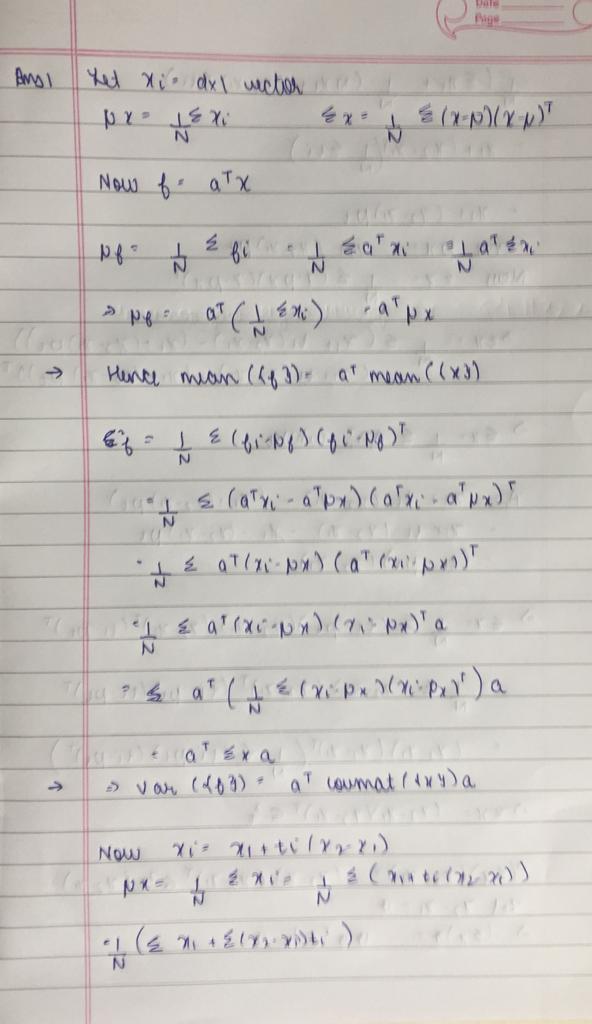 Date
Page
Ans1 Let xi = dx1 vector
μx = 1/N Σ xi Σx = 1/N Σ (x-μ)(x-μ)^T
Now f = a^T x
μf = 1/N Σ fi = 1/N Σ a^T xi = 1/N a^T Σ xi
⇒ μf = a^T ( 1/N Σ xi ) = a^T μx
→ Hence mean ({f}) = a^T mean ({x})
Σf = 1/N Σ (fi - μf) (fi - μf)^T
= 1/N Σ (a^T xi - a^T μx) (a^T xi - a^T μx)^T
= 1/N Σ a^T (xi - μx) (a^T (xi - μx))^T
= 1/N Σ a^T (xi - μx) (xi - μx)^T a
= Σ a^T ( 1/N Σ (xi - μx) (xi - μx)^T ) a
= a^T Σx a
→ ⇒ var ({f}) = a^T covmat ({x}) a
Now xi = x1 + ti (x2 - x1)
μx = 1/N Σ xi = 1/N Σ (x1 + ti (x2 - x1))
= 1/N ( Σ x1 + Σ (x2 - x1) ti )